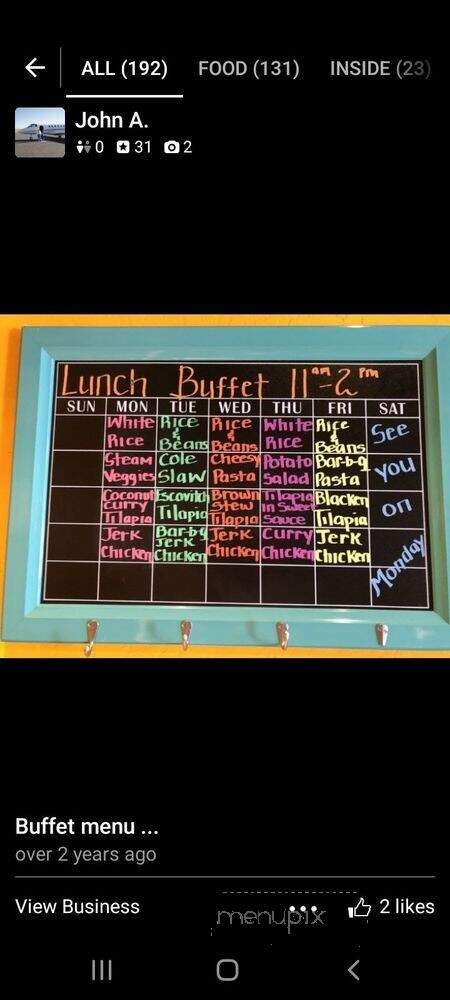 ALL (192) FOOD (131) INSIDE (23)
John A.
0 31 2
Lunch Buffet 11am-2pm
SUN MON TUE WED THU FRI SAT
White Rice
Steam Veggies
Coconut Curry Tilapia
Jerk Chicken
Rice & Beans
Cole Slaw
Escovitch Tilapia
Bar-b-q Jerk Chicken
Rice & Beans
Cheesy Pasta
Brown Stew Tilapia
Jerk Chicken
White Rice
Potato Salad
Tilapia in Sweet Sauce
Curry Chicken
Rice & Beans
Bar-b-q Pasta
Blacken Tilapia
Jerk Chicken
See
you
on
Monday
Buffet menu ...
over 2 years ago
View Business
menupix
2 likes